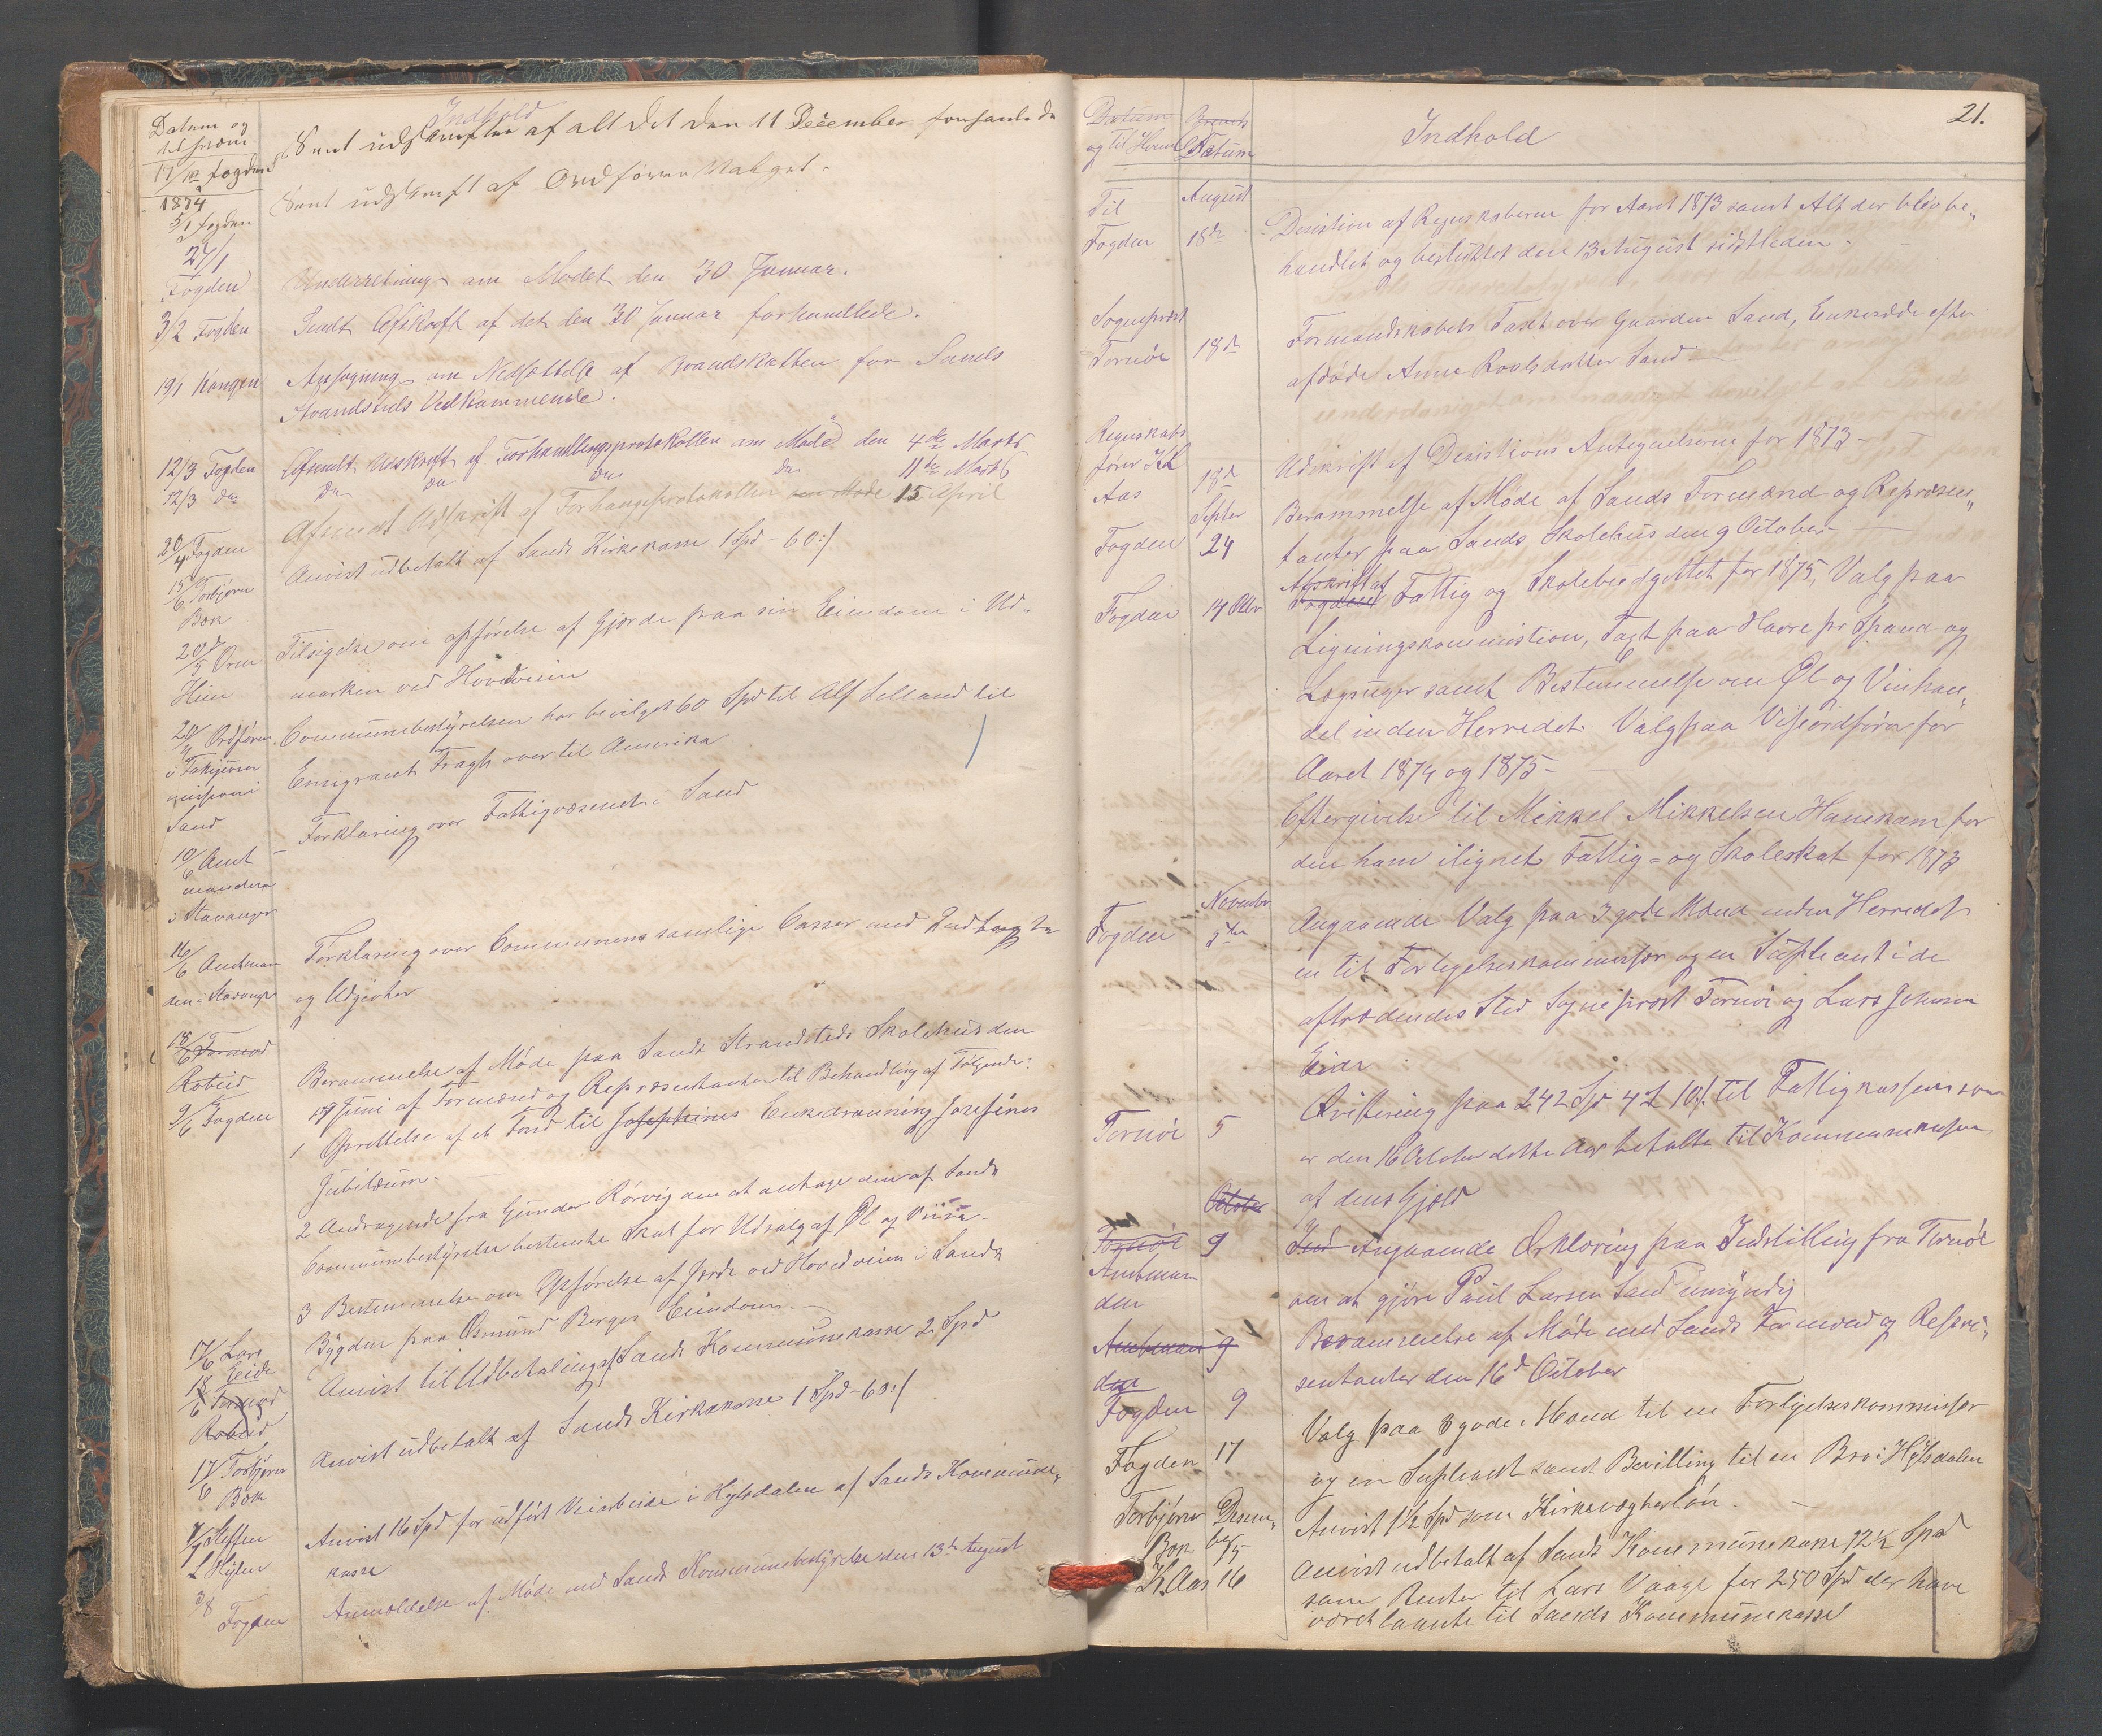 Datum og
til hvem
Indhold
17/12 Fogden
Sent udskrifter af alt det den 11 December forhandlede
1874
5/1 Fogden
Sent udskrift af Ordförer Valget.
27/1
Fogden
Underretning om Mødet den 30 Januar.
3/2 Fogden
Sendt Afskrift af det den 30 Januar forhandlede.
19/1 Kongen
Ansøgning om Nedsættelse af Brandskatten for Sands
Strandsteds Vedkommende.
12/3 Fogden
Afsendt Udskrift af Forhandlingsprotokollen om Møde den 4de Marts
12/3 do
do do do do 11te Marts
20/4 Fogden
Afsendt Udskrift af Forhangsprotokollen om Møde 15 April
15/6 Torbjørn
Bøk
Anvist udbetalt af Sands Kirkekasse 1 Spd - 60 :/
20/5 Orm
Hiim
Tilsigelse om opførelse af Gjærde paa sin Eiendom i Ud-
marken ved Hovedveien
20/4 Ordfører
i Fatigcom
mission i
Sand
Communebestyrelsen har bevilget 60 Spd til Alf Lelland til
Emigrant Fragt over til Amerika
10/6 Amt
manden
i Stavanger
Forklaring over Fattigvæsenet i Sand
16/6 Amtman
den i Stavanger
Forklaring over Communens samtlige Casser med Indtægter
og Udgivter
18/6 Formænd
Robud
Berammelse af Møde paa Sands Strandsteds Skolehus den
19 Juni af Formænd og Repræsentanter til Behandling af Følgende:
9/6 Fogden
1 Oprettelse af et Fond til Josephines Enkedronning Josefines
Jubilæum.
2 Andragende fra Gunder Rørvig om at antage den af Sands
Communebestyrelse bestemte Skat for Udsalg af Øl og Viin.
3 Bestemmelse om Opførelse af Gjerde ved Hovedveien i Sands
Bygden paa Osmund Berges Eiendom.
17/6 Lars
Eide
Anvist til Udbetaling af Sands Kommunekasse 2 Spd
18/6 Formænd
Robud
17/6 Torbjørn
Bøk
Anvist udbetalt af Sands Kirkekasse 1 Spd - 60 :/
7/7 Steffen
L Hylen
Anvist 16 Spd for udført Veiarbeide i Hylsdalen af Sands Kommune-
kasse
3/8
Fogden
Anmeldelse af Møde med Sands Kommunebestyrelse den 13de August
21.
Datum
og Til Hvem
Brevets
Datum
Indhold
Til
Fogden
August
18de
Desistion af Regnskaberne for Aaret 1873 samt Alt der blev be-
handlet og besluttet den 13 August sidstleden.
Sogneprest
Tornøe
18de
Formandskabets Taxt over Gaarden Sand, Enkesæde efter
afdøde Anne Roalsdatter Sand
Regnskabs
fører KK
Aas
18de
Udskrift af Desistions Antegnelserne for 1873
Fogden
Septer
24
Berammelse af Møde af Sands Formænd og Repræsen-
tanter paa Sands Skolehus den 9 October
Fogden
14 Obr
Afskrift af
Fogden Fattig og Skolebudgettet for 1875, Valg paa
Ligningskommistion, Taxt paa Havre pr Spand og
Logsuger samt Bestemmelse om Øl og Vinhan-
del inden Herredet. Valg paa Viseordfører for
Aaret 1874 og 1875
Eftergivelse til Mikkel Mikkelsen Hanekam for
den ham ilignet Fattig- og Skoleskat for 1873
Fogden
November
5te
Angaaende Valg paa 3 gode Mænd inden Herredet
en til Forligelseskommissær og en Supleant i de
aftrædendes Sted Sogneprest Tornøe og Lars Johnsen
Eide
Tornöe
5
Kvitering paa 242 Spd 4 ort 10 s. til Fattigkassen som
er den 16 October dette Aar betalte til Kommunekassen
af dens Gjeld
October
Tornöe
Amtman
den
9
Ind Angaaende Erklæring paa Indstilling fra Tornöe
om at gjøre Poul Larsen Sand umyndig
Amtman
den
9
Fogden
9
Berammelse af Møde med Sands Formænd og Repre-
sentanter den 16d October
Fogden
17
Valg paa 3 gode Mænd til en Forligelseskommissær
og en Supleant samt Bevilling til en Bro i Hylsdalen
Torbjørn
Bøk
Desem-
ber
5
Anvist 1½ Spd som Kirkevægterløn.
K. Aas 16
Anvist udbetalt af Sands Kommunekasse 12½ Spd
som Renter til Lars Vaage for 250 Spd der have
været laante til Sands Kommunekasse